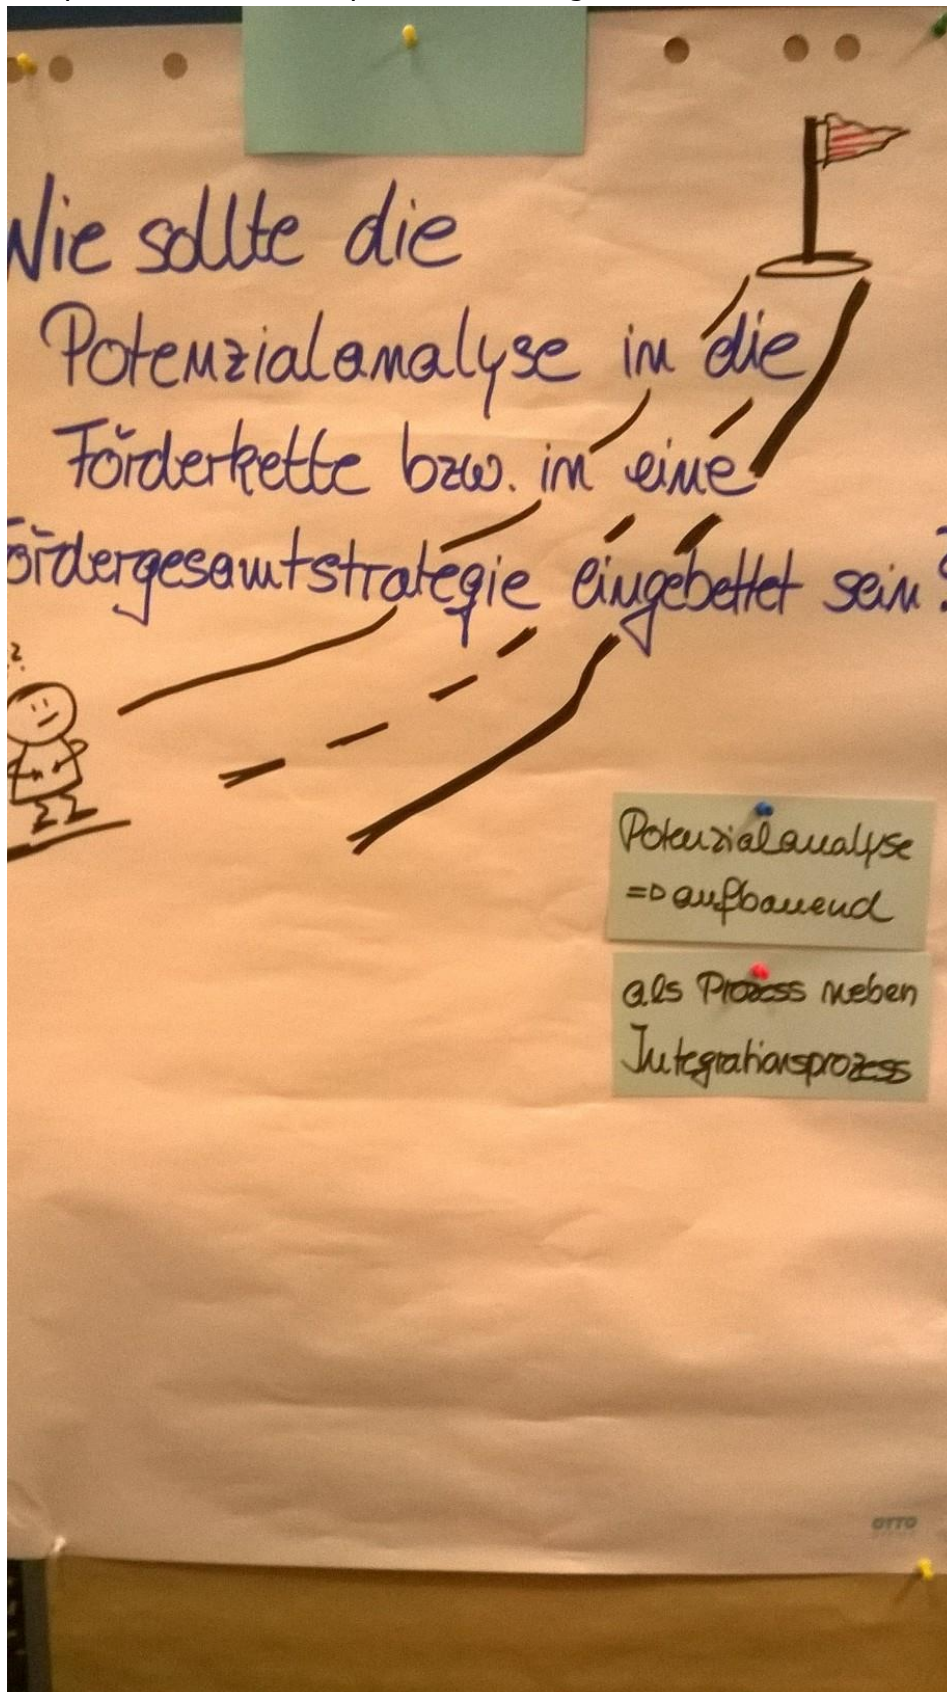 Wie sollte die
Potenzialanalyse in die
Förderkette bzw. in eine
Fördergesamtstrategie eingebettet sein?
??
Potenzialanalyse
=> aufbauend
als Prozess neben
Integrationsprozess
OTTO